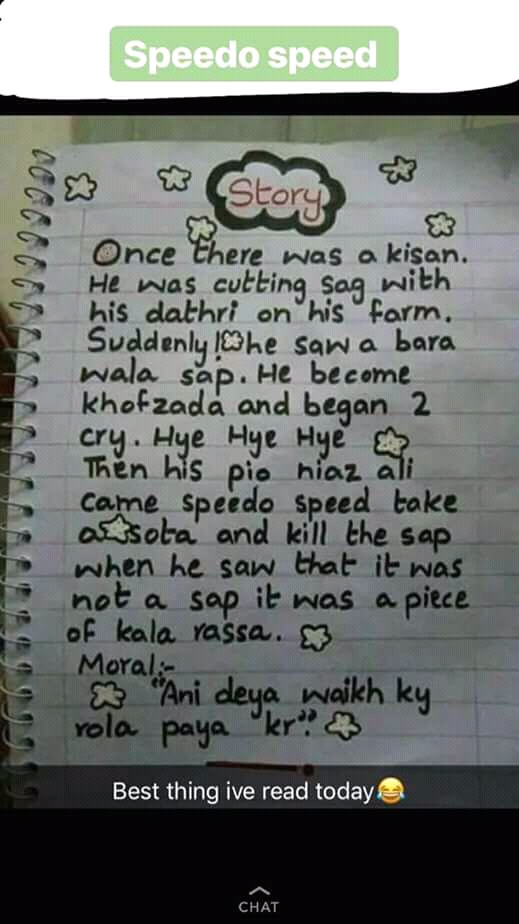 Speedo speed
Story
Once there was a kisan.
He was cutting sag with
his dathri on his farm.
Suddenly! he saw a bara
wala sap. He become
khofzada and began 2
cry. Hye Hye Hye
Then his pio niaz ali
came speedo speed take
a sota and kill the sap
when he saw that it was
not a sap it was a piece
of kala rassa.
Moral:-
"Ani deya waikh ky
rola paya kr".
Best thing ive read today😂
CHAT